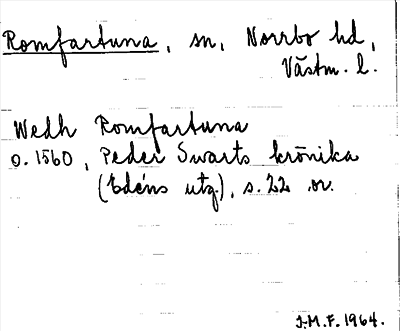 Romfartuna, sn, Norrbo hd,
Västm. l.
Wedh Romfartuna
o. 1560, Peder Swarts krönika
(Edéns utg.), s. 22 ov.
J.M.F. 1964.